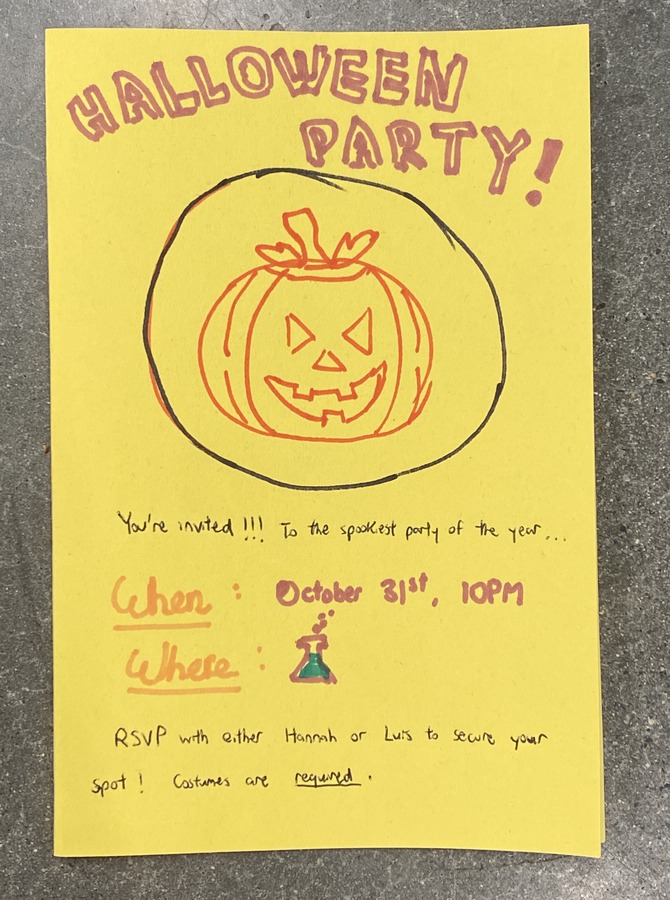 HALLOWEEN
PARTY!
You're invited!!! To the spookiest party of the year...
When: October 31st, 10PM
Where:
RSVP with either Hannah or Luis to secure your
spot! Costumes are required.